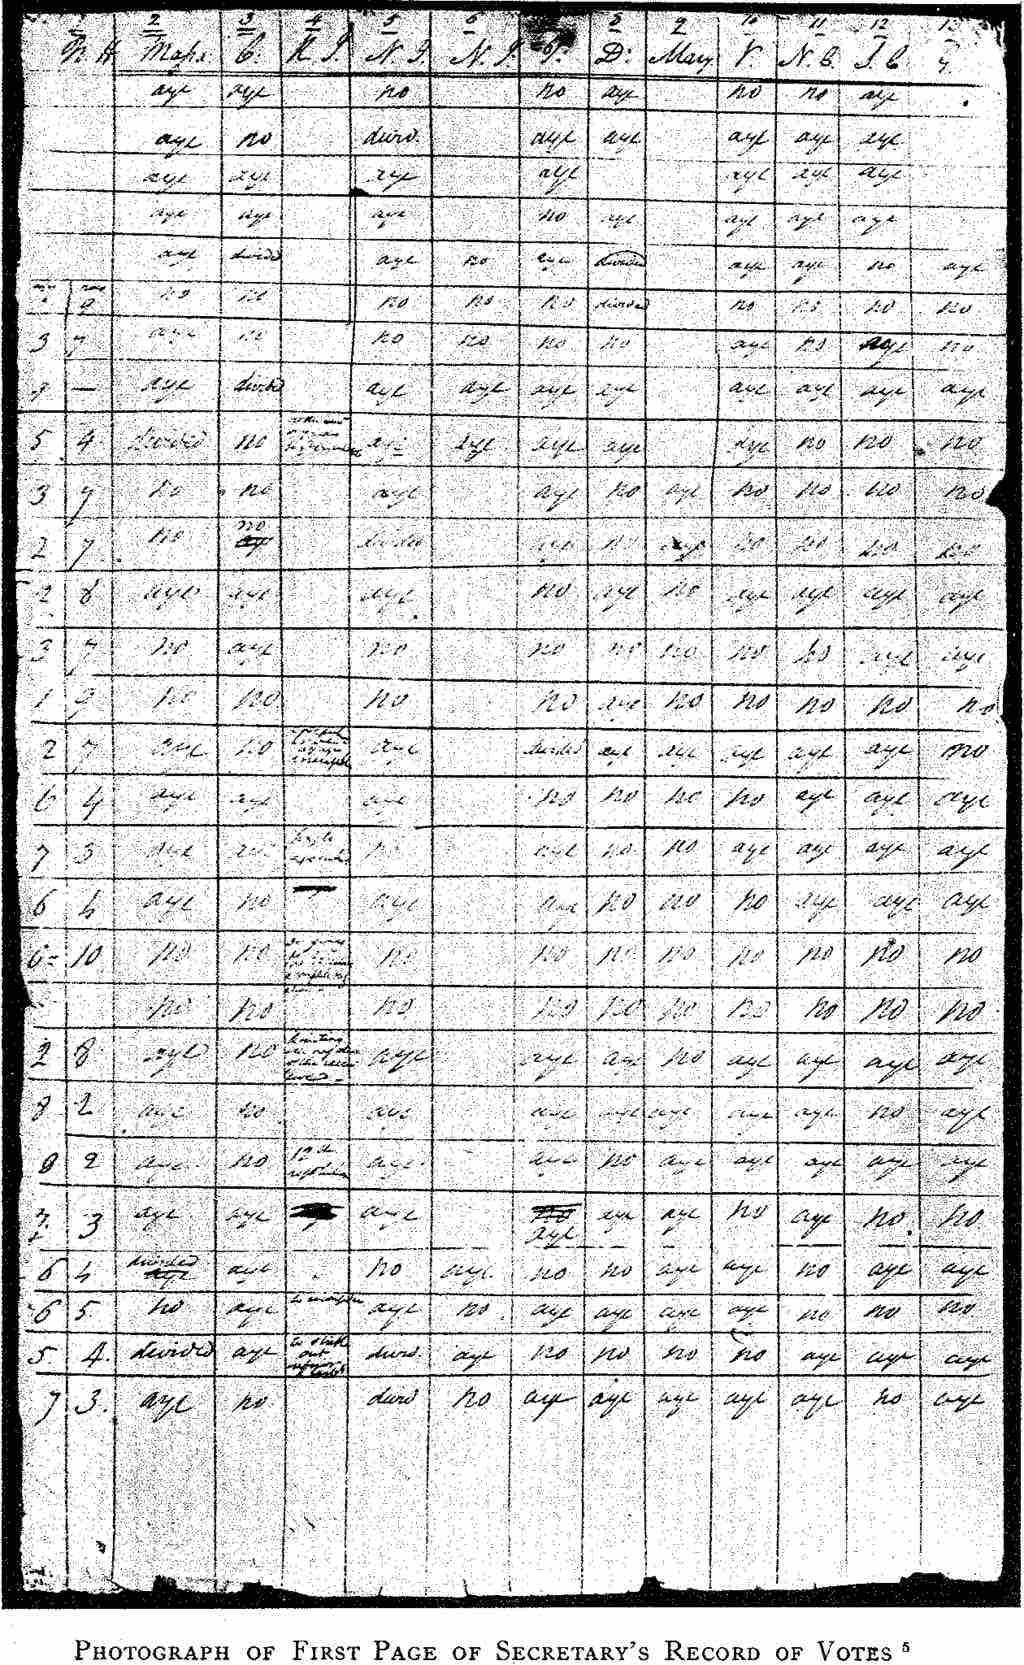 2 3 4 5 6 8 9 10 11 12
N H Mass. C. R I. D: Mary. V. N. C. S. C G.
aye aye no no aye no no aye
aye no divid. aye aye aye aye aye
aye aye aye aye aye aye aye
aye aye aye no aye aye aye aye
aye divided aye no aye divided aye aye no aye
no no no no no divided no no no no
3 7 aye no no no no no aye no aye no
aye divided aye aye aye aye aye aye aye aye
5 4 divided no aye aye aye aye aye no no no
3 7 no no aye aye no aye no no no no
2 7 no no divided aye no aye no no no no
2 8 aye aye aye no aye no aye aye aye aye
3 7 no aye no no no no no no aye aye
1 9 no no no no aye no no no no no
2 7 aye no aye divided aye aye aye aye aye no
6 4 aye aye aye no no no no aye aye aye
7 3 aye aye aye no no aye aye aye aye
6 4 aye no aye aye no no no aye aye aye
0 10 no no no no no no no no no no
no no no no no no no no no no
2 8 aye no aye aye aye no aye aye aye aye
8 2 aye no aye aye aye aye aye aye no aye
8 2 aye no aye aye no aye aye aye aye aye
7 3 aye aye aye no aye aye no aye no no
aye
6 4 divided aye aye no aye no no aye aye no aye aye
6 5 no aye aye no aye aye aye aye no no no
5 4. divided aye to strike out divid. aye no no no no aye aye aye
7 3. aye no divid no aye aye aye aye aye no aye
PHOTOGRAPH OF FIRST PAGE OF SECRETARY'S RECORD OF VOTES 5